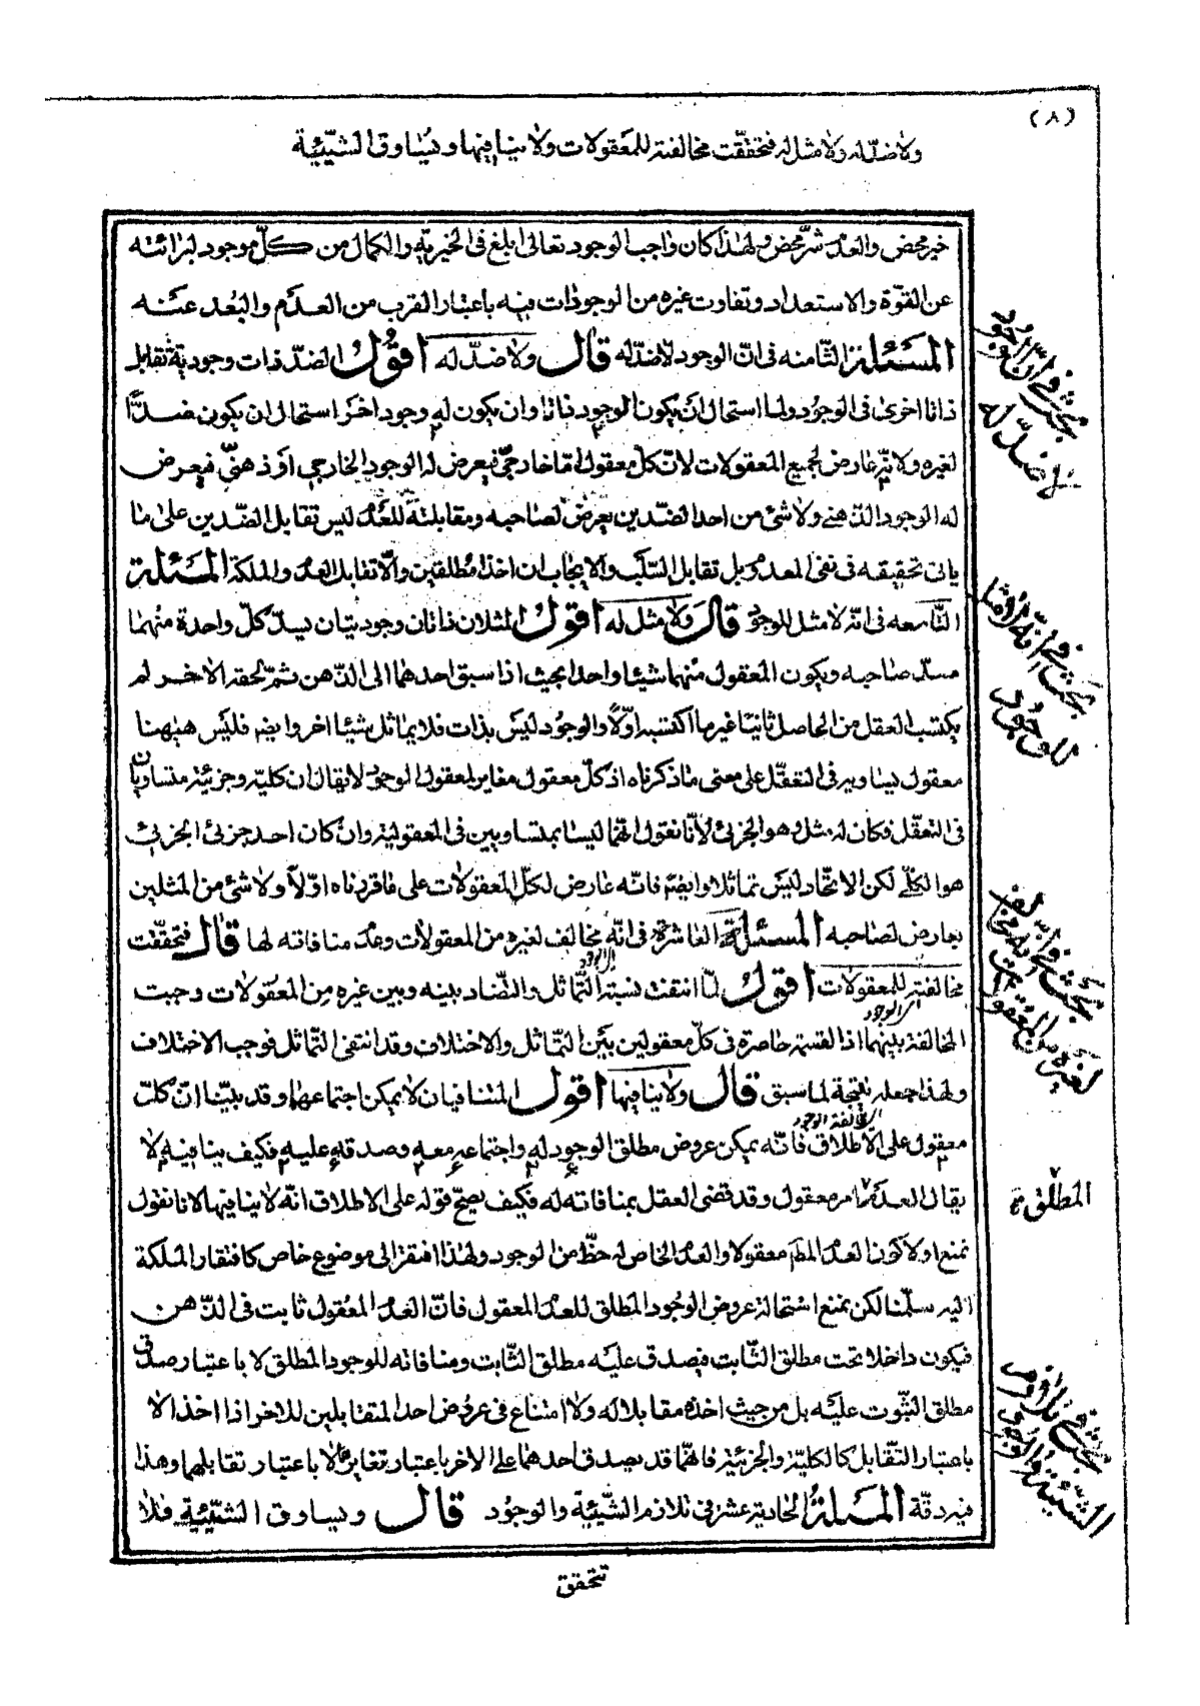 (٨)
ولا ضدّ له ولا مثل له فتحققت مخالفته للمعقولات ولا ينافيها ويساوق الشيئية
خير محض والعدم شرّ محض ولهذا كان واجب الوجود تعالى ابلغ فى الخيرية والكمال من كلّ موجود لبرائته
عن القوّة والاستعداد وتفاوت غيره من الوجودات فيه باعتبار القرب من العدم والبعد عنه
المسئلة الثامنه فى انّ الوجود لا ضدّ له قال ولا ضدّ له اقول الضدّ ذات وجودية تقابل
ذاتا اخرى فى الوجود ولما استحال ان يكون الوجود ذاتا وان يكون له وجود اخر استحال ان يكون ضدّا
لغيره ولانّه عارض لجميع المعقولات لانّ كلّ معقول امّا خارجىّ فيعرض له الوجود الخارجى او ذهنىّ فيعرض
له الوجود الذهنى ولا شئ من احد الضدّين يعرض لصاحبه ومقابلته للعدم ليس تقابل الضدّين على ما
ياتى تحقيقه فى نفى المعدوم بل تقابل السّلب والايجاب ان اخذا مطلقين والّا تقابل العدم والملكة المسئلة
التاسعه فى انّه لا مثل للوجود قال ولا مثل له اقول المثلان ذاتان وجوديّتان يسدّ كلّ واحدة منهما
مسدّ صاحبه ويكون المعقول منهما شيئا واحدا بحيث اذا سبق احدهما الى الذّهن ثمّ لحقه الاخر لم
يكتسب العقل من الحاصل ثانيا غير ما اكتسبه اوّلا والوجود ليس بذات فلا يماثل شيئا اخر وايضه فليس هيهنا
معقول يساويه فى التعقّل على معنى ما ذكرناه اذ كلّ معقول مغاير لمعقول الوجود لا يقال ان كليّه وجزئيّه متساويان
فى التعقّل فكان له مثل وهو الجزئى لأنّا نقول انّهما ليسا بمتساويين فى المعقولية وان كان احد جزئى الجزئى
هو الكلّى لكن الاتّحاد ليس تماثلا وايضه فانّه عارض لكلّ المعقولات على ما قررناه اوّلا ولا شئ من المثلين
بعارض لصاحبه المسئلة العاشرة فى انّه مخالف لغيره من المعقولات وعدم منافاته لها قال فتحققت
مخالفته للمعقولات اقول لمّا انتفت نسبة التّماثل والتّضاد بينه وبين غيره من المعقولات وجبت
المخالفة بينهما اذ القسمة حاصرة فى كلّ معقولين بين التّماثل والاختلاف وقد انتفى التّماثل فوجب الاختلاف
ولهذا جعله نتيجة لما سبق قال ولا ينافيها اقول المتنافيان لا يمكن اجتماعهما وقد بيّنّا انّ كلّ
معقول على الاطلاق فانّه يمكن عروض مطلق الوجود له واجتماعه معه وصدقه عليه فكيف ينافيه لا
يقال العدم امر معقول وقد قضى العقل بمنافاته له فكيف يصحّ قوله على الاطلاق انّه لا ينافيها لانا نقول
نمنع اولا كون العدم المطم معقولا والعدم الخاص له حظّ من الوجود ولهذا افتقر الى موضوع خاص كافتقار الملكة
اليه سلّمنا لكن نمنع استحالة عروض الوجود المطلق للعدم المعقول فانّ العدم المعقول ثابت فى الذّهن
فيكون داخلا تحت مطلق الثّابت فيصدق عليه مطلق الثّابت ومنافاته للوجود المطلق لا باعتبار صدق
مطلق الثبوت عليه بل من حيث اخذه مقابلا له ولا امتناع فى عروض احد المتقابلين للاخر اذا اخذ الا
باعتبار التّقابل كالكليّة والجزئيّة فانّهما قد يصدق احدهما على الاخر باعتبار تغايرها لا باعتبار تقابلهما وهذا
فيه دقّة المسئلة الحادية عشر فى تلازم الشّيئية والوجود قال ويساوق الشّيئية فلا
تتحقق
بحث فى انّ الوجود
لا ضدّ له
بحث فى انّه لا مثل
للوجود
بحث فى انّه مخالف
لغيره من المعقولات
المطلق
بحث فى تلازم
الشيئية والوجود